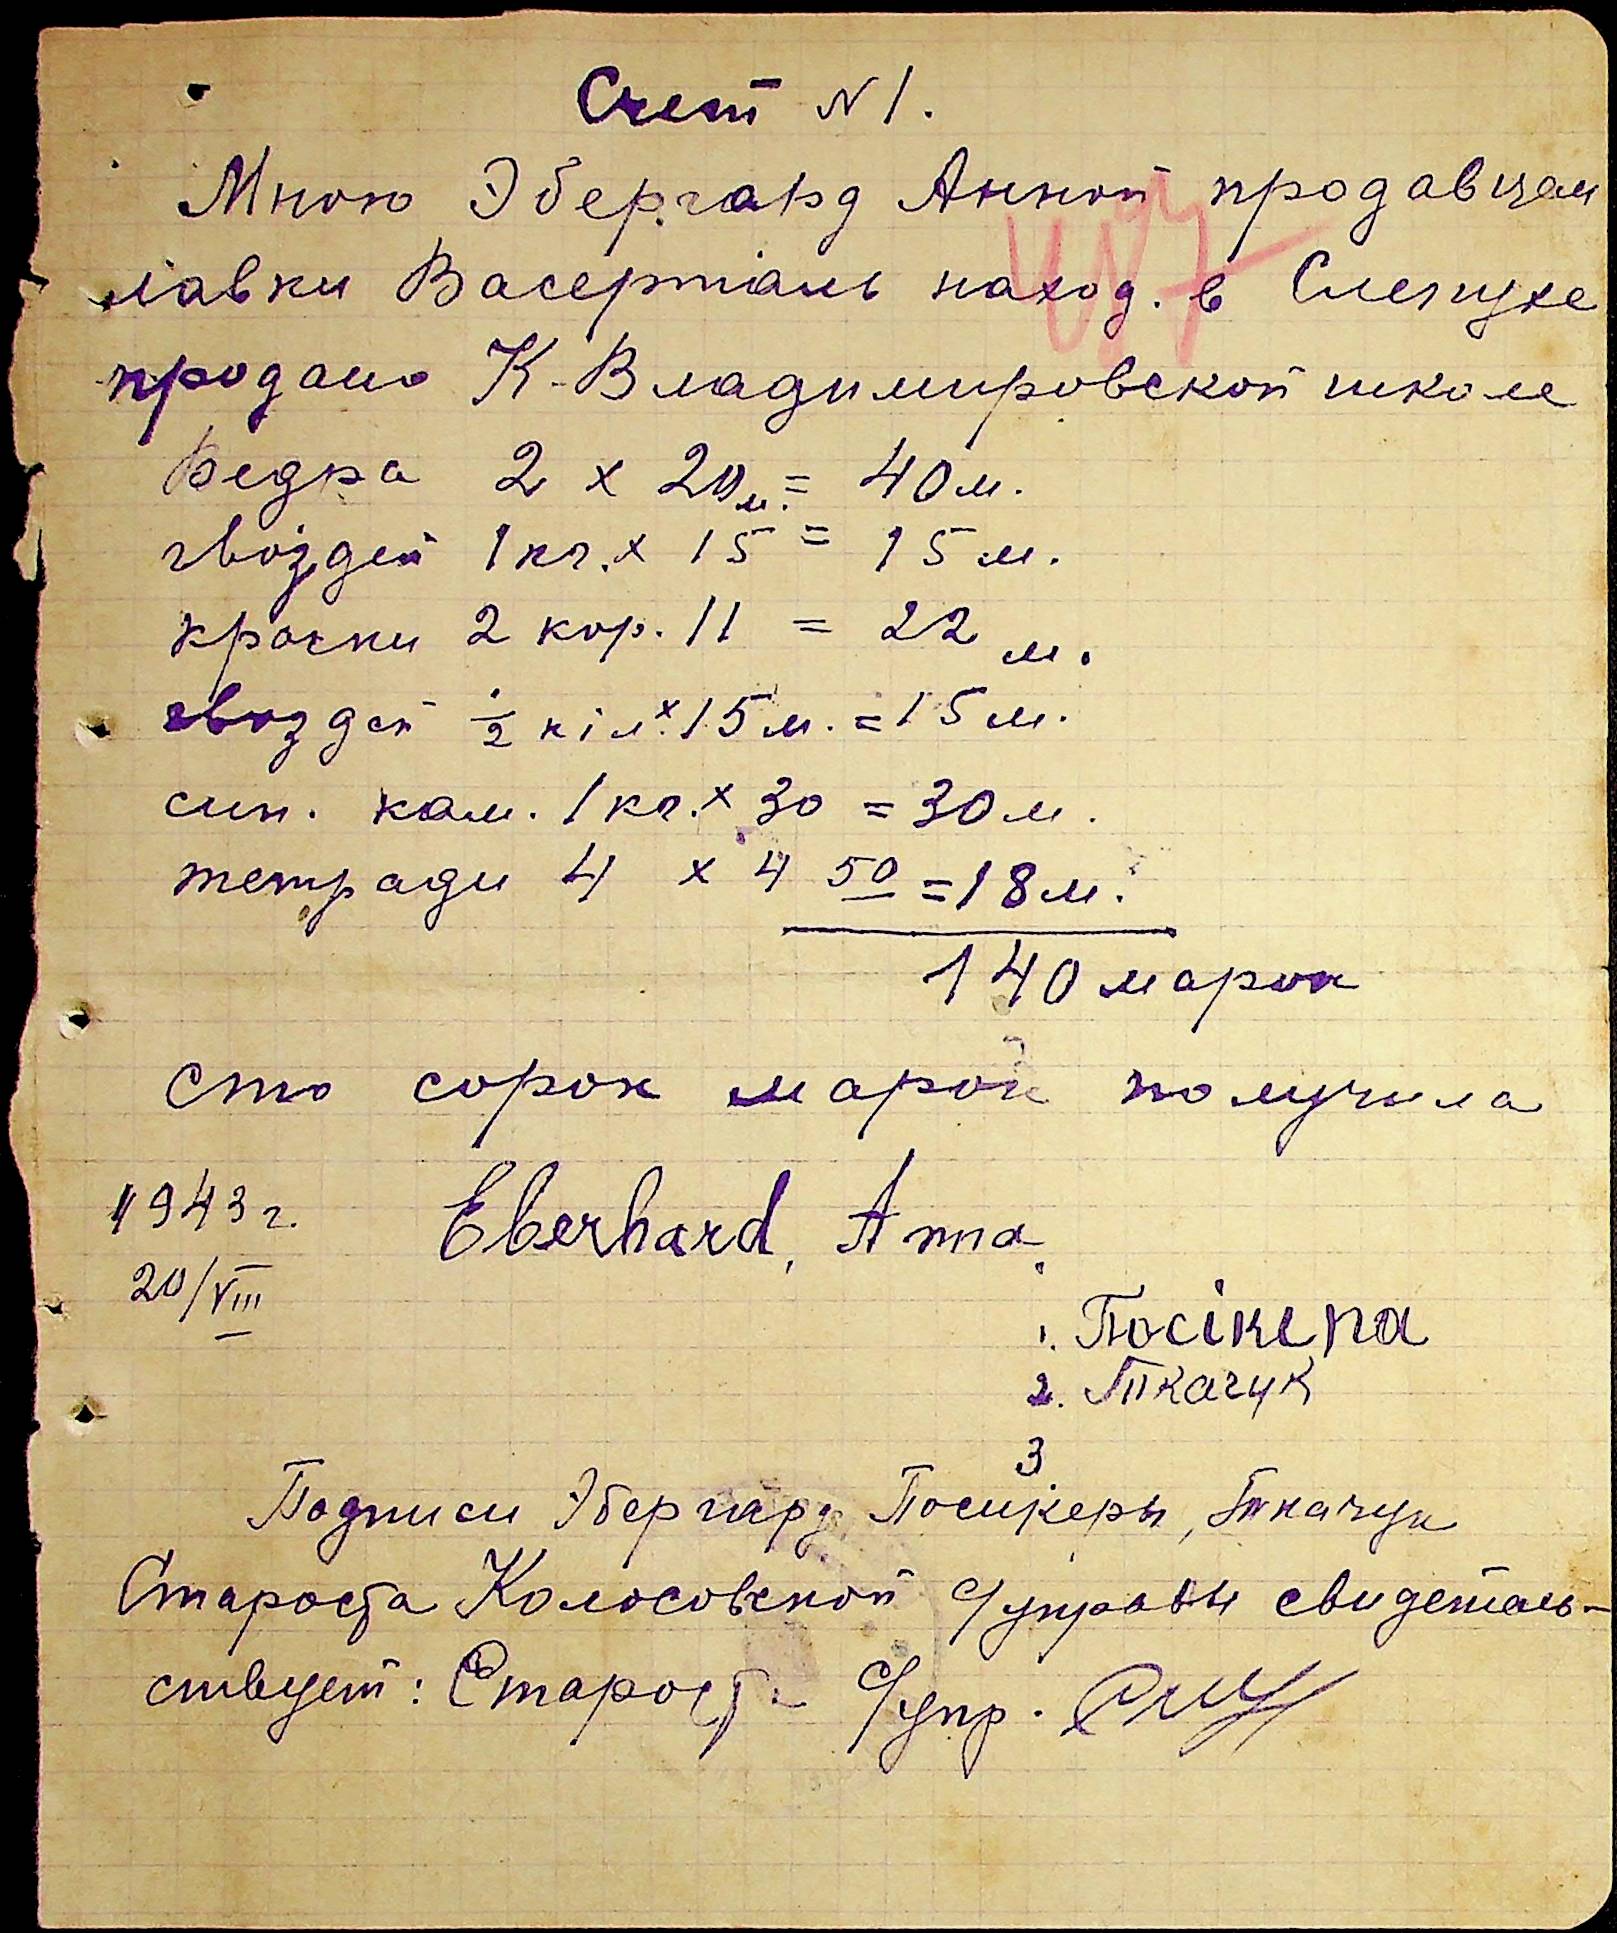 Счет N 1.
Мною Эбергард Анной продавцом
лавки Васерталь наход. в Слепухе
продано К-Владимировской школе
Ведра 2 x 20м. = 40 м.
гвоздей 1 кг. x 15 = 15 м.
краски 2 кор. 11 = 22 м.
гвоздей 1/2 кіл. x 15 м. = 15 м.
син. кам. 1 кг. x 30 = 30 м.
тетради 4 x 4 50 = 18 м.
140 марок
сто сорок марок получила
1943 г. Eberhard, Anna.
20/VIII
1. Посікера
2. Ткачук
3
Подписи Эбергард Посикеры, Ткачук
Староста Колосовской с/управы свидетель-
ствует: Староста с/упр.